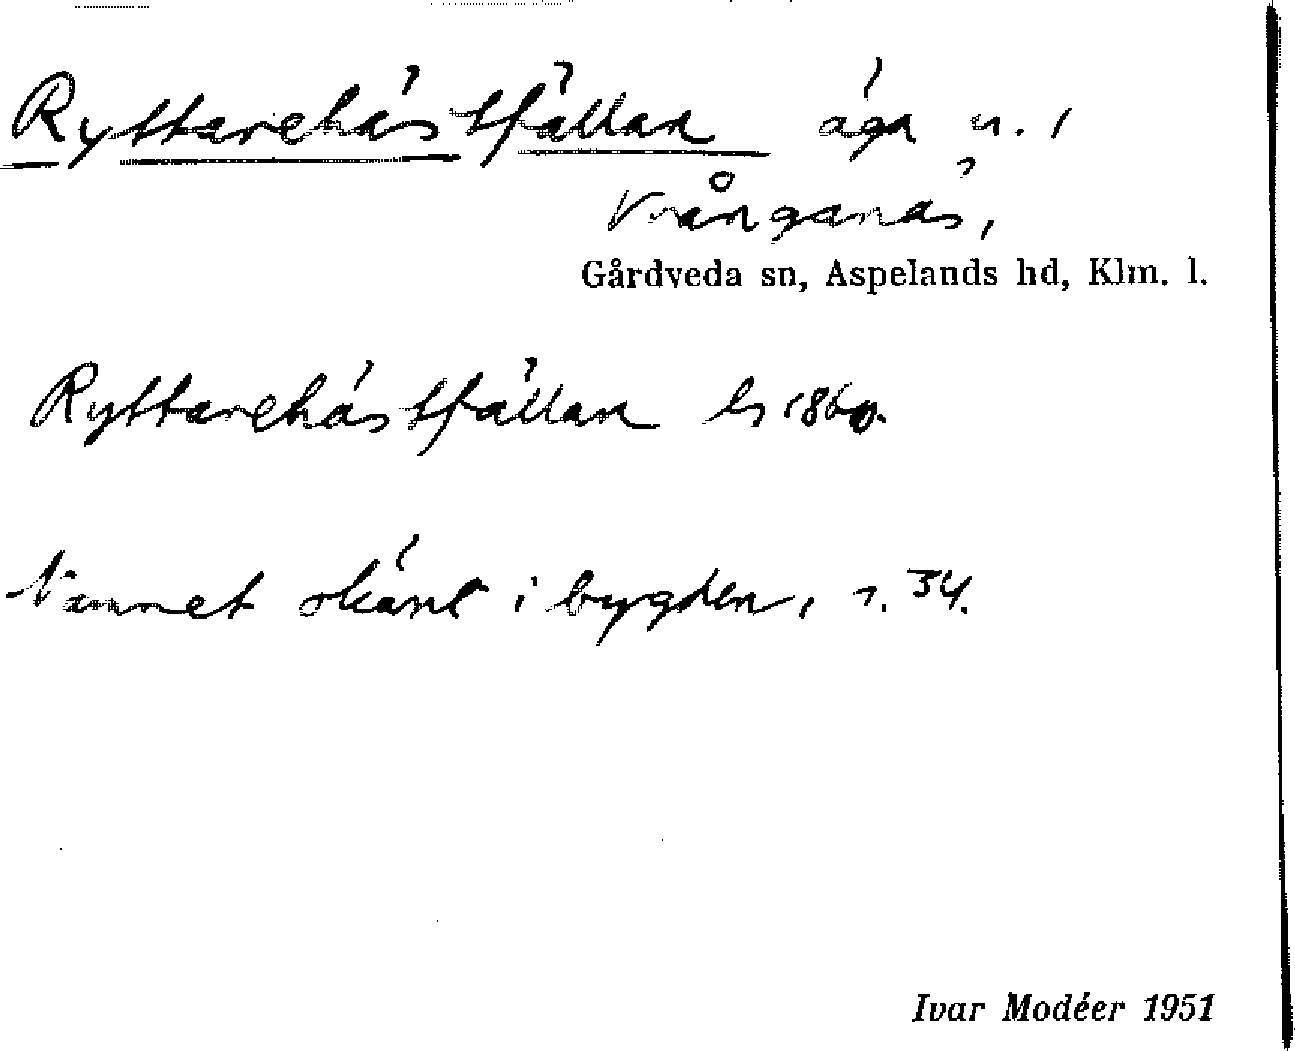 Ryttarehästfällan äga u. i
Vrånganäs,
Gårdveda sn, Aspelands hd, Klm. l.
Ryttarehästfällan ls 1860.
Namnet okänt i bygden, s. 34.
Ivar Modéer 1951